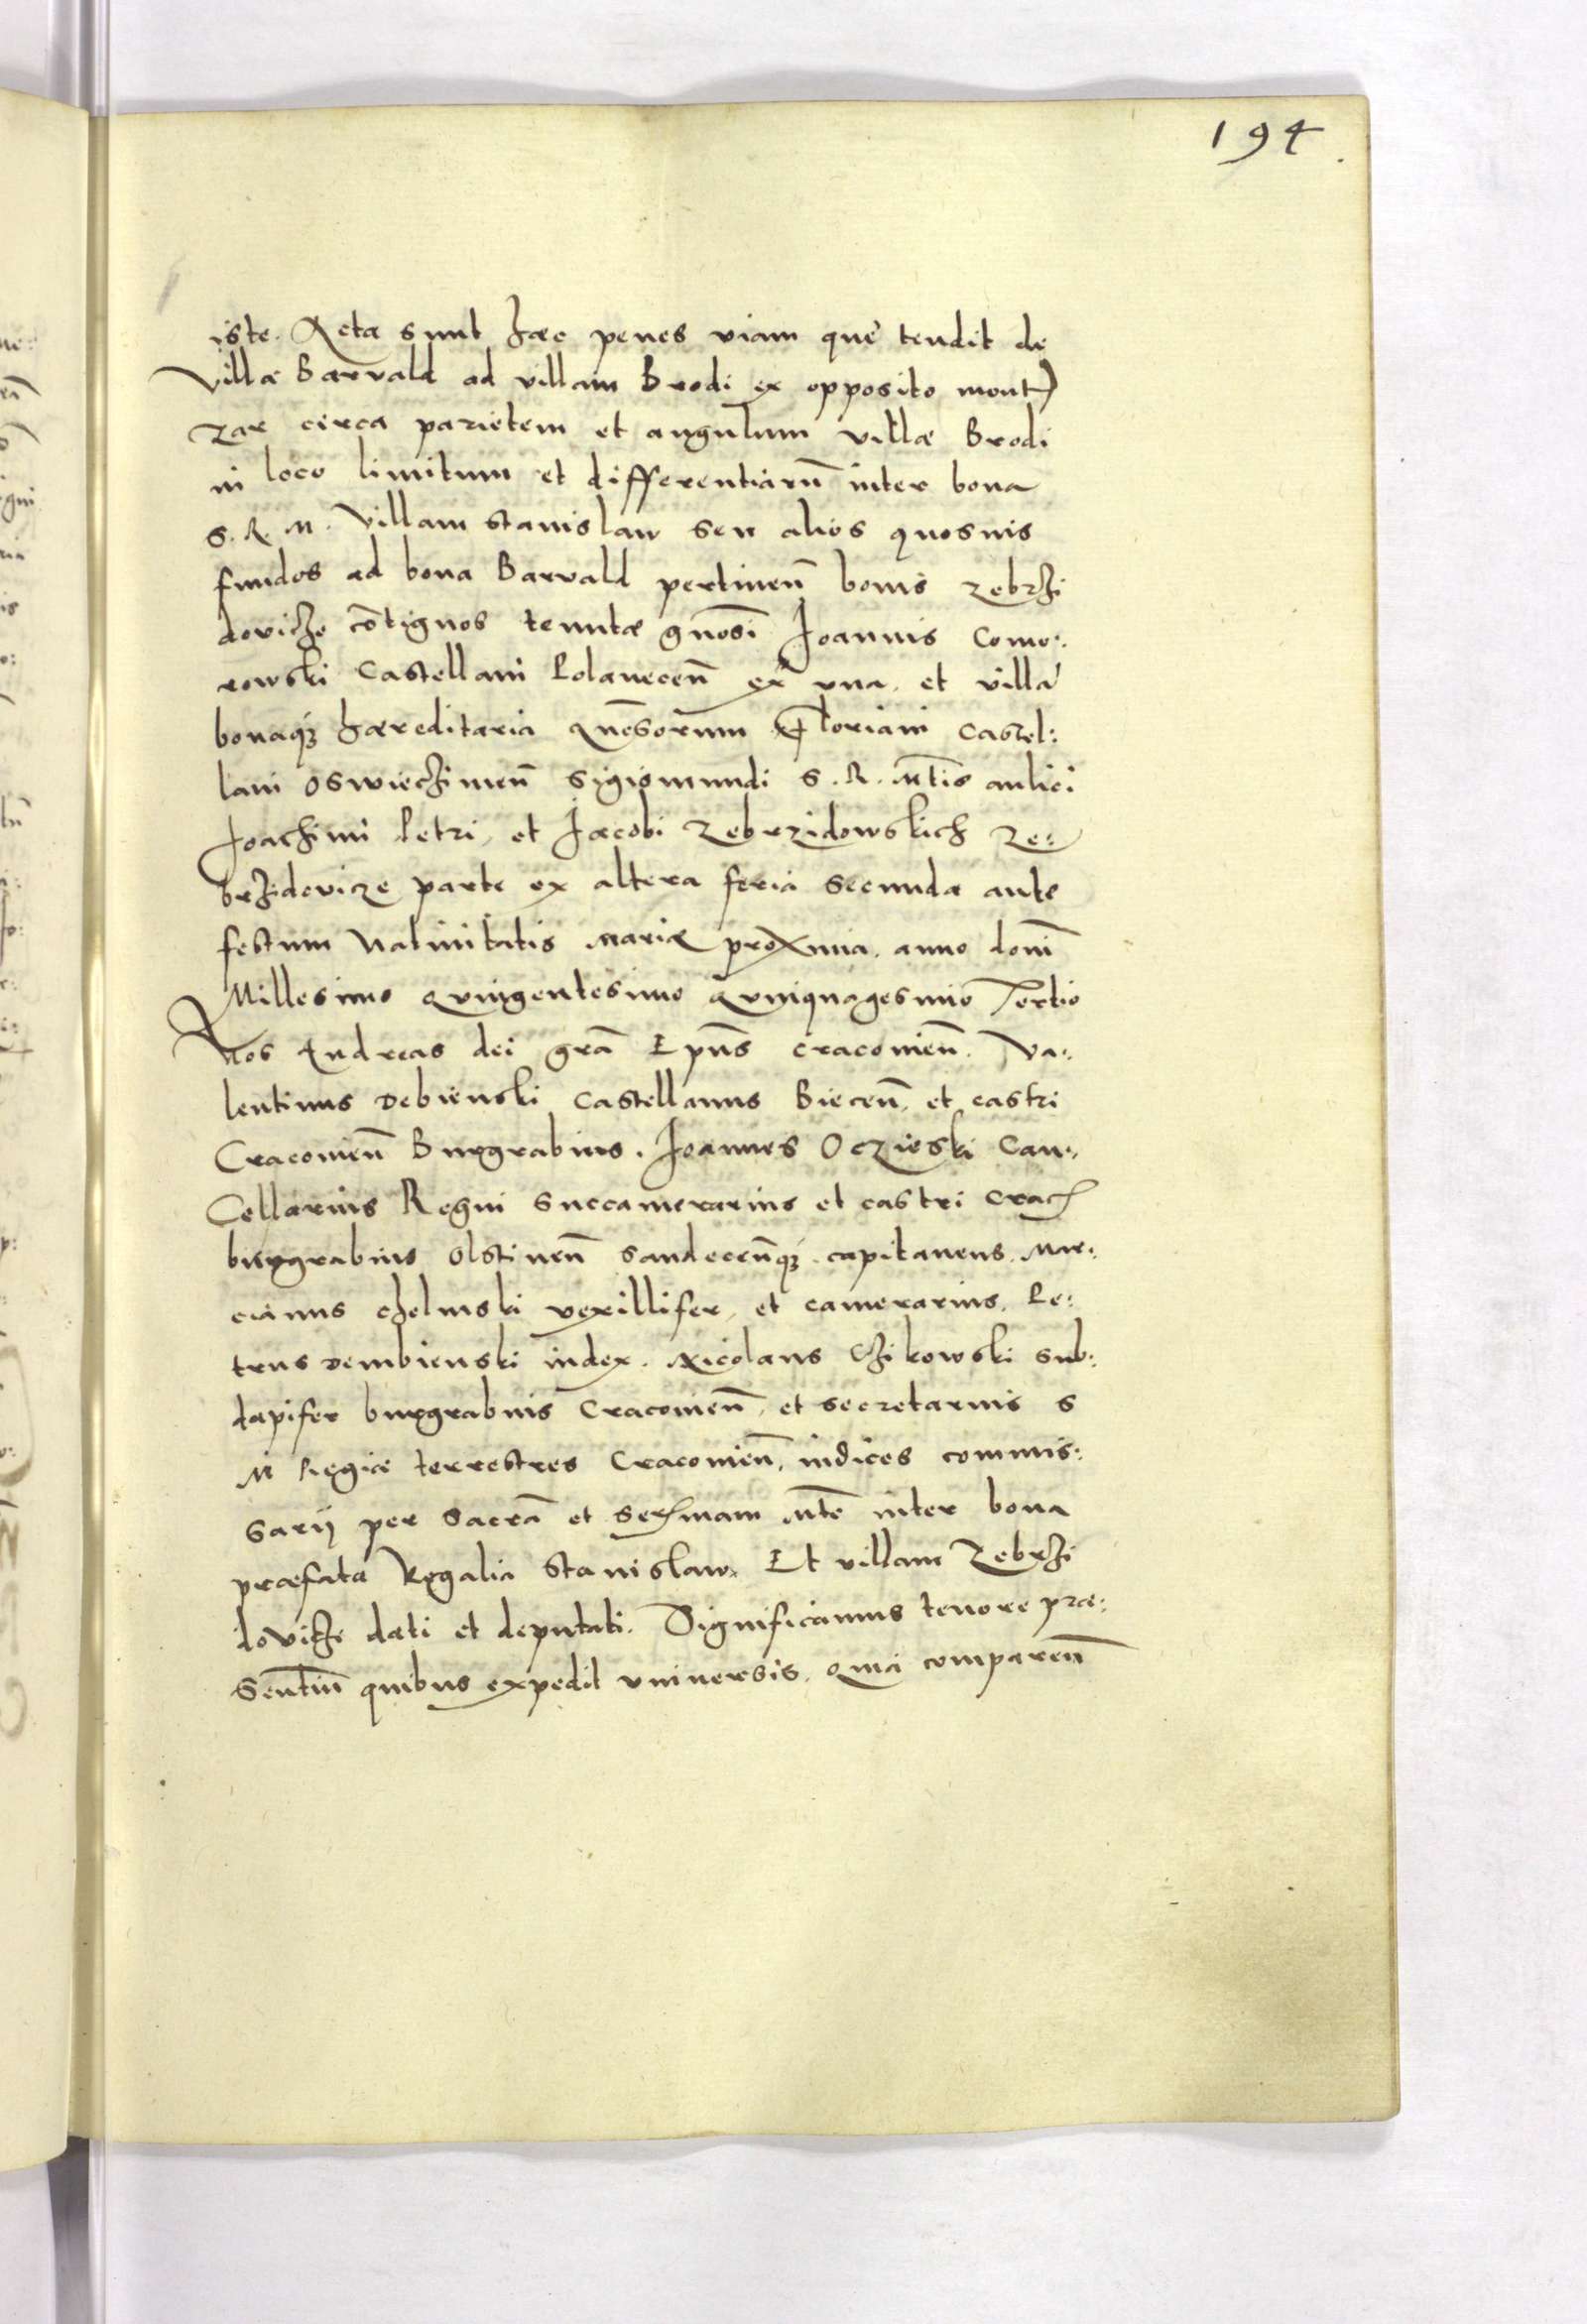 194
iste. Acta sunt hæc penes viam que tendit de
Villa Barvald ad villam Brodi ex opposito mont
zar circa parietem et angulum villæ Brodi
in loco limitum et differentiarū inter bona
S. R. M. Villam Stanislaw seu alios quosuis
fundos ad bona Barvald pertineñ bonis zebrzi
dovicze cōtiguos tenutæ gnosi Joannis Como:
rowski Castellani Polaneceñ ex vna, et villa
bonaqꝫ hæreditaria Gnosorum Floriani Castel:
lani Oswieczimeñ Sigismundi S. R. Mtis aulici
Joachimi Petri, et Jacobi Zebrzidowskich Ze:
brzidovicze parte ex altera feria secunda ante
festum Natiuitatis Mariæ proxima. anno domī
Millesimo Quingentesimo Quinquagesimo Tertio
Nos Andreas dei grā Epūs Cracouieñ. Va:
lentinus Debienski Castellanus Bieceñ, et castri
Cracouieñ Burgrabius. Joannes Oczieski Can:
Cellarius Regni Succamerarius et castri Crac
burgrabius Olstineñ Sandeceñqꝫ capitaneus. Mar:
cianus Chelmski vexillifer, et camerarius. Pe:
trus Dembienski iudex. Nicolaus Czikowski Sub:
dapifer burgrabius Cracouieñ, et Secretarius S
M Regiæ terrestres Cracouieñ, iudices commis:
sarij per Sacrā et Sermam Mtē inter bona
præfata Regalia Stanislaw. Et villam Zebrzi
dovicze dati et deputati. Significamus tenore præ:
sentiū quibus expedit vniuersis. Quia compareñ